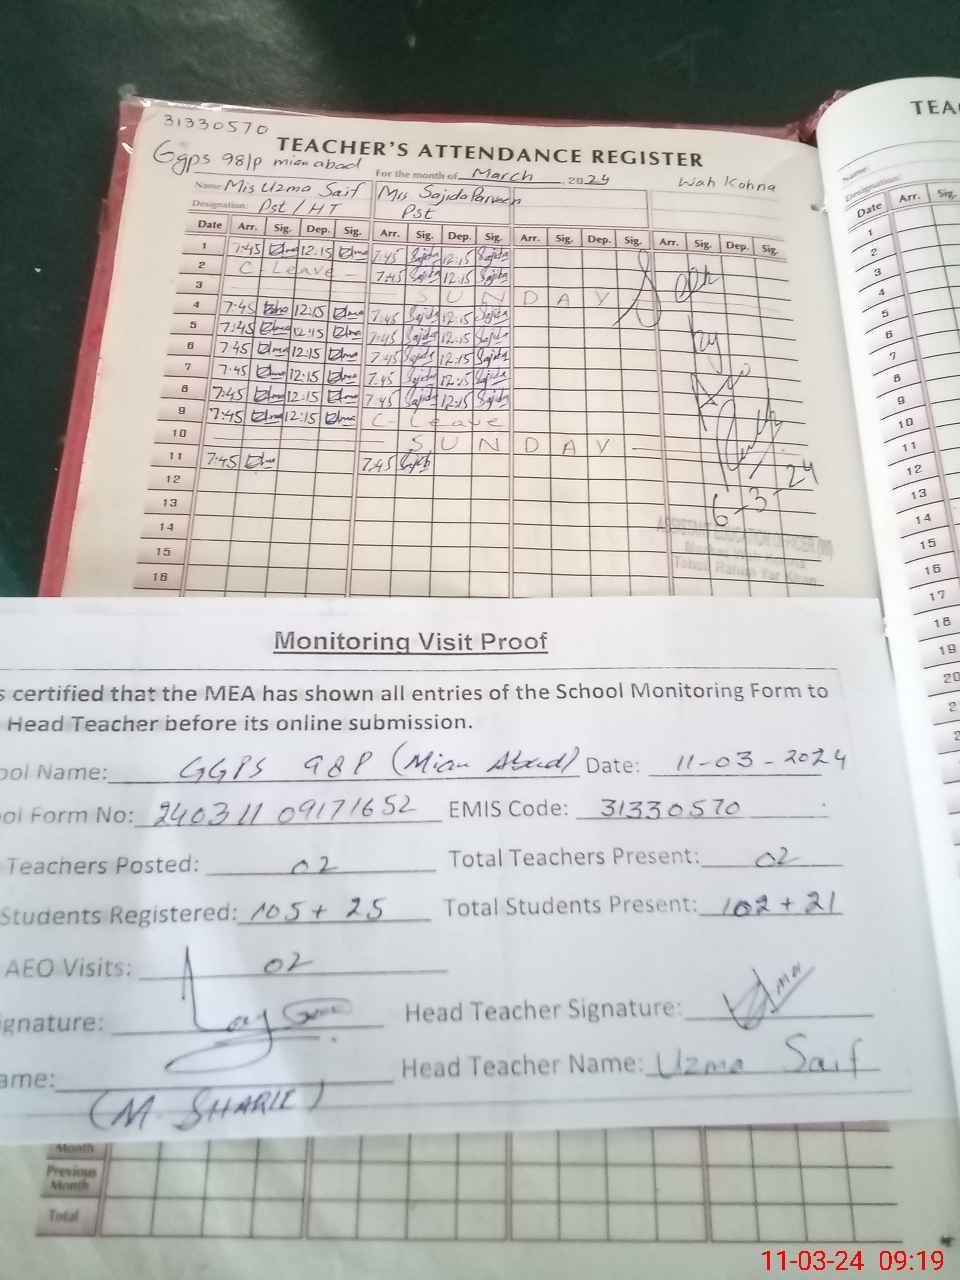 31330570
TEACHER'S ATTENDANCE REGISTER
Ggps 98/p mianabad
For the month of March, 2024
Wah Kohna
Name Mis Uzma Saif Mrs Sajida Parveen
Designation: Pst / HT Pst
Date Arr. Sig. Dep. Sig. Arr. Sig. Dep. Sig. Arr. Sig. Dep. Sig. Arr. Sig. Dep. Sig.
1 7:45 12:15 7:45 Sajida 12:15 Sajida
2 C- Leave - 7:45 Sajida 12:15 Sajida
3 SUNDAY
4 7:45 12:15 7:45 Sajida 12:15 Sajida
5 7:45 12:15 7:45 Sajida 12:15 Sajida
6 7:45 12:15 7:45 Sajida 12:15 Sajida
7 7:45 12:15 7:45 Sajida 12:15 Sajida
8 7:45 12:15 7:45 Sajida 12:15 Sajida
9 7:45 12:15 C- Leave
10 SUNDAY
11 7:45 7:45 Sajida
12
13
14
15
16
Seen
by
6-3-24
ASSISTANT EDUCATION OFFICER (W)
Tehsil Rahim Yar Khan
TEA
Name:
Designation:
Date Arr. Sig.
1
2
3
4
5
6
7
8
9
10
11
12
13
14
15
16
17
18
19
20
2
2
Monitoring Visit Proof
s certified that the MEA has shown all entries of the School Monitoring Form to
Head Teacher before its online submission.
ool Name: GGPS 98P (Mian Abad) Date: 11-03-2024
ol Form No: 240311 09171652 EMIS Code: 31330570
Teachers Posted: 02 Total Teachers Present: 02
Students Registered: 105 + 25 Total Students Present: 102 + 21
AEO Visits: 02
ignature: Head Teacher Signature:
ame: Head Teacher Name: Uzma Saif
(M. SHARIF)
Month
Previous
Month
Total
11-03-24 09:19